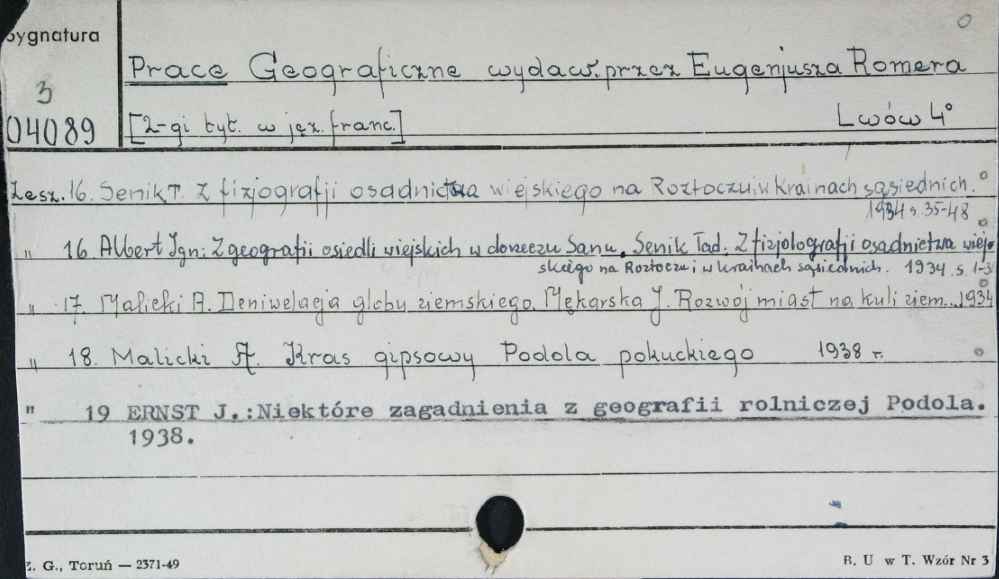 Sygnatura
3
04089
Prace Geograficzne wydaw. przez Eugenjusza Romera
[2-gi tyt. w jęz. franc.] Lwów 4°
Zesz. 16. Senik T. Z fizjografji osadnictwa wiejskiego na Roztoczu i w krainach sąsiednich.
1934 s. 35-48
" 16. Albert Ign: Z geografii osiedli wiejskich w dorzeczu Sanu. Senik Tad. Z fizjolografji osadnictwa wiej-
skiego na Roztoczu i w krainach sąsiednich. 1934. s. 1-3
" 17. Malicki A. Deniwelacja globu ziemskiego. Mękarska J. Rozwój miast na kuli ziem... 1934
" 18. Malicki A. Kras gipsowy Podola pokuckiego 1938 r.
" 19 ERNST J.:Niektóre zagadnienia z geografii rolniczej Podola.
1938.
Z. G., Toruń — 2371-49 B. U w T. Wzór Nr 3